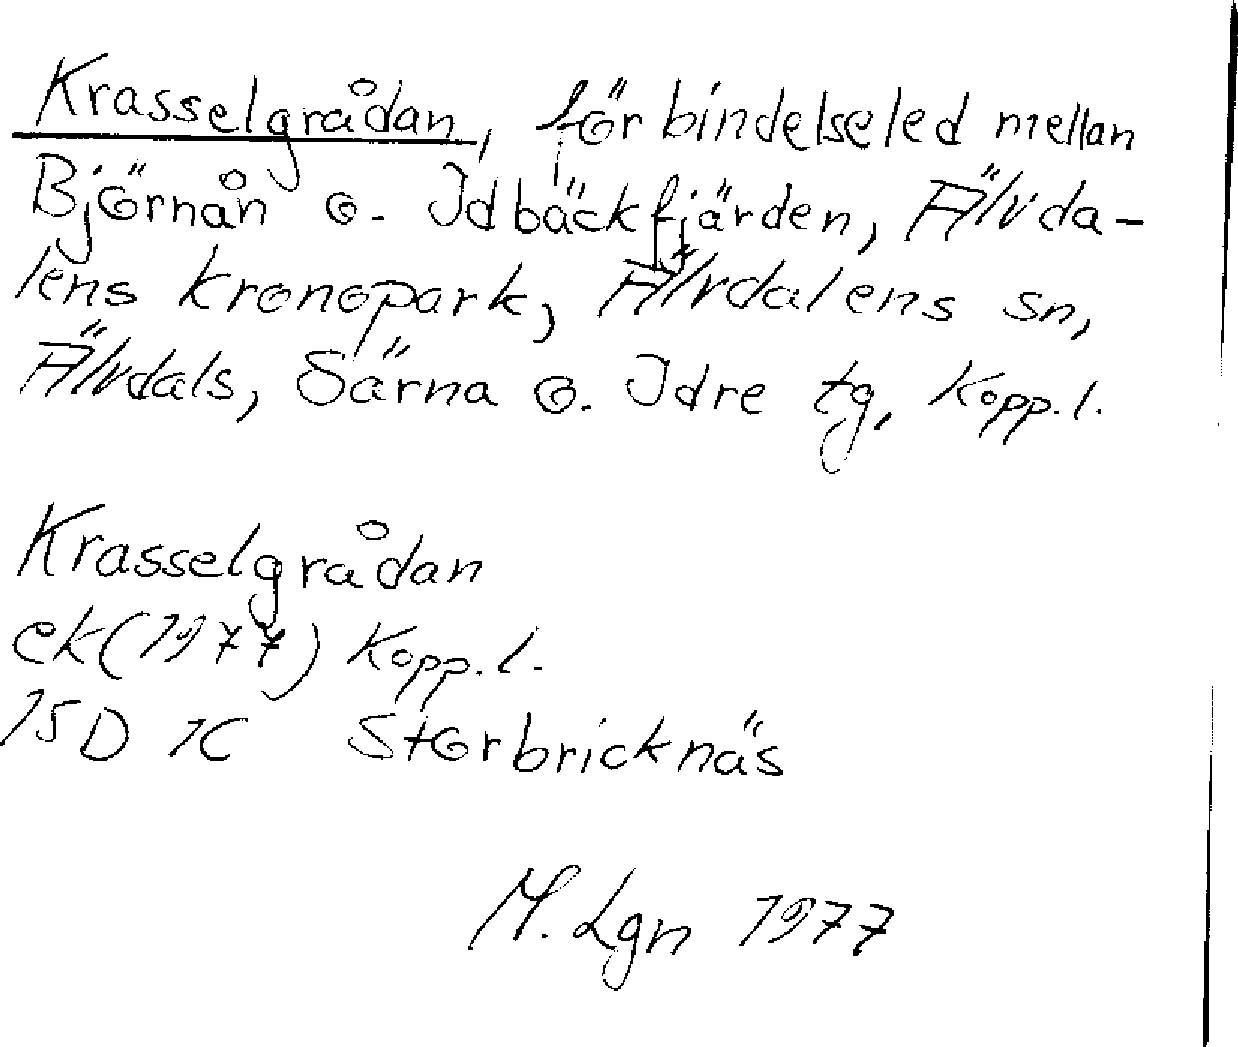 Krasselgrådan, förbindelseled mellan
Björnån o. Idbäckfjärden, Älvda-
lens kronopark, Älvdalens sn,
Älvdals, Särna o. Idre tg, Kopp. l.
Krasselgrådan
ek (1977) Kopp. l.
15D 1C Storbricknäs
M. Lgn 1977